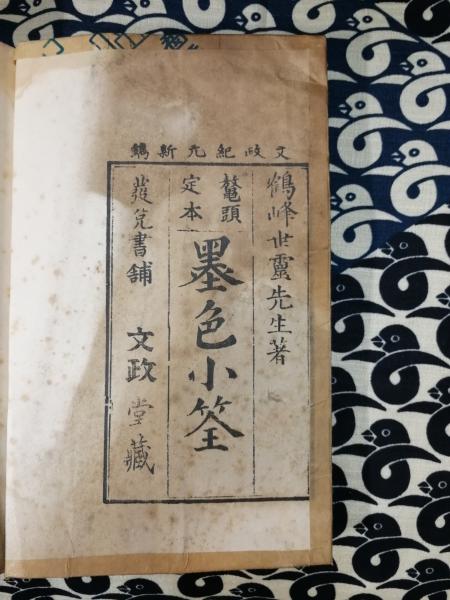 文政紀元新鐫
鶴峰世靈先生著
鼇頭
定本
墨色小筌
發兌書舗 文政堂藏